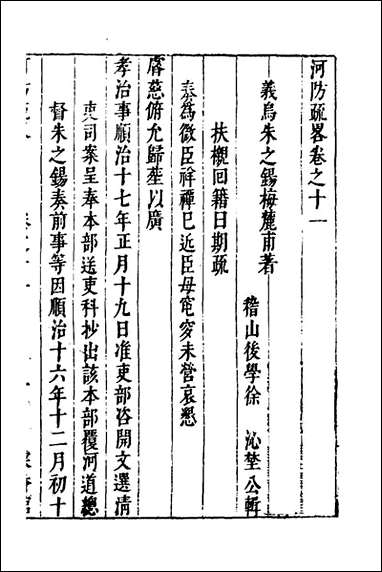 河防疏畧卷之十一
義烏朱之錫梅麓甫著
稽山後學徐　沁埜公輯
扶櫬回籍日期疏
奏爲微臣祥禫已近臣母窀穸未營哀懇
睿慈俯允歸塟以廣
孝治事順治十七年正月十九日准吏部咨開文選清
吏司案呈奉本部送吏科抄出該本部覆河道總
督朱之錫奏前事等因順治十六年十二月初十